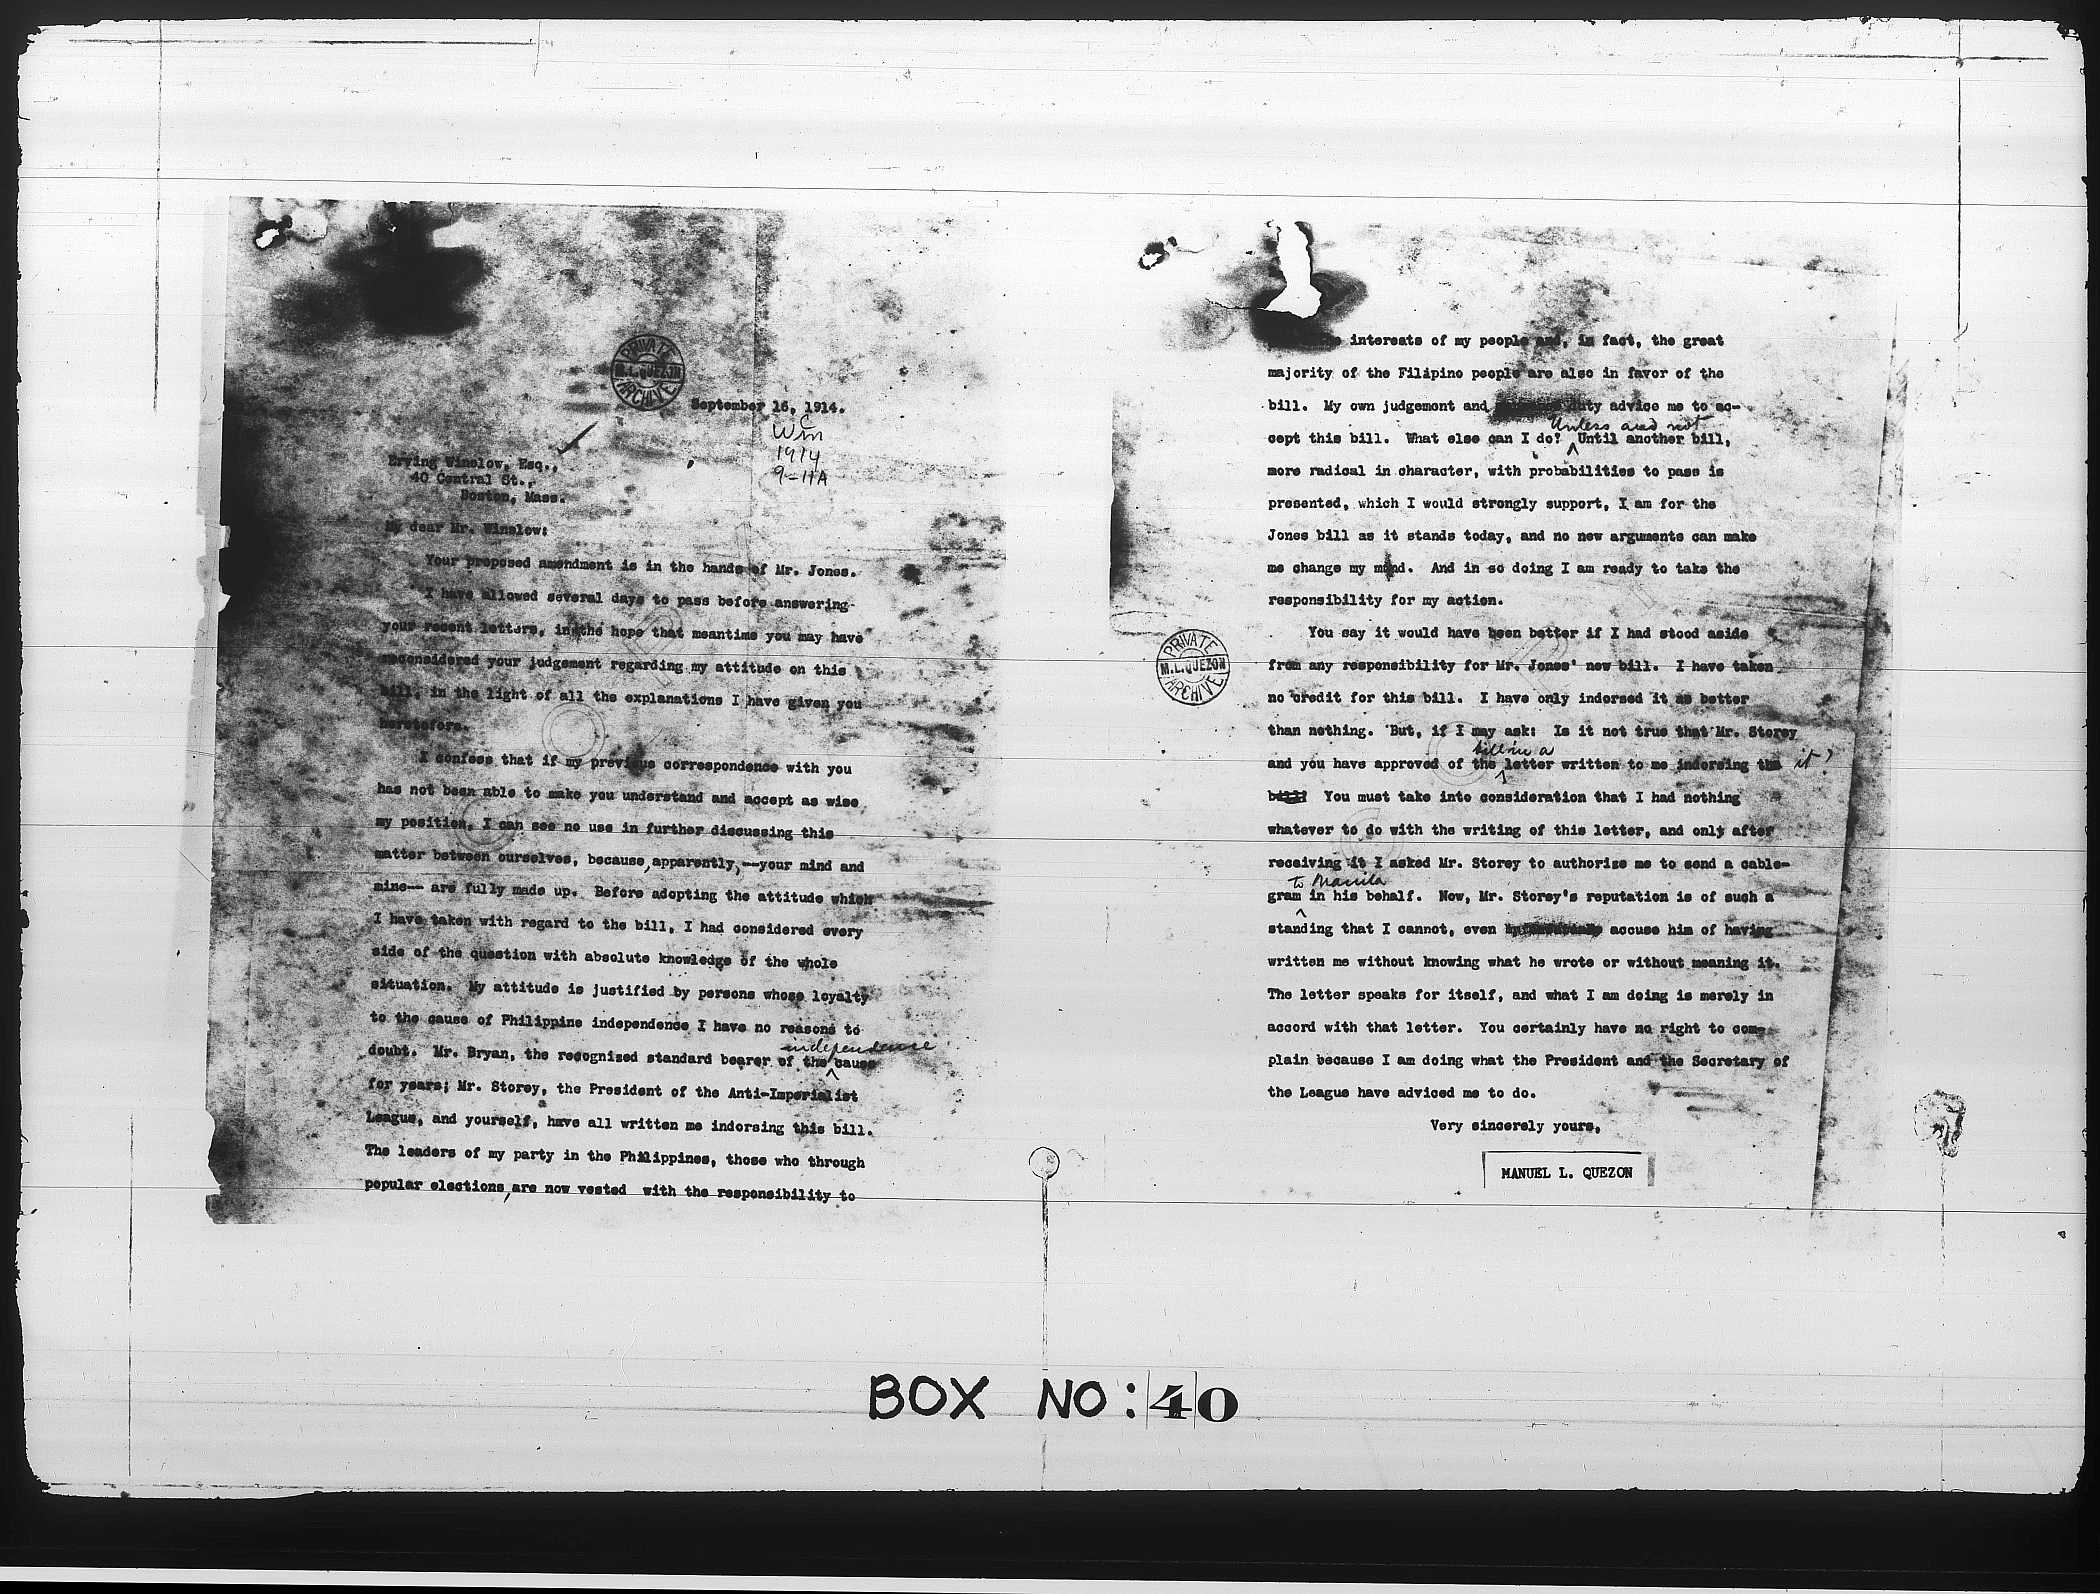 PRIVATE
M.L.QUEZON
ARCHIVE
September 16, 1914.
C
Win
1914
9-11A
Erving Winslow, Esq.,
40 Central St.,
Boston, Mass.
My dear Mr. Winslow:
Your proposed amendment is in the hands of Mr. Jones.
I have allowed several days to pass before answering
your recent letters, in the hope that meantime you may have
reconsidered your judgement regarding my attitude on this
bill, in the light of all the explanations I have given you
heretofore.
I confess that if my previous correspondence with you
has not been able to make you understand and accept as wise
my position, I can see no use in further discussing this
matter between ourselves, because, apparently, --your mind and
mine-- are fully made up. Before adopting the attitude which
I have taken with regard to the bill, I had considered every
side of the question with absolute knowledge of the whole
situation. My attitude is justified by persons whose loyalty
to the cause of Philippine independence I have no reasons to
independence
doubt. Mr. Bryan, the recognized standard bearer of the cause
for years; Mr. Storey, the President of the Anti-Imperialist
League, and yourself, have all written me indorsing this bill.
The leaders of my party in the Philippines, those who through
popular elections, are now vested with the responsibility to
interests of my people and, in fact, the great
majority of the Filipino people are also in favor of the
bill. My own judgement and duty advice me to ac-
Unless and not
cept this bill. What else can I do? Until another bill,
more radical in character, with probabilities to pass is
presented, which I would strongly support, I am for the
Jones bill as it stands today, and no new arguments can make
me change my mind. And in so doing I am ready to take the
responsibility for my action.
You say it would have been better if I had stood aside
from any responsibility for Mr. Jones' new bill. I have taken
no credit for this bill. I have only indorsed it as better
than nothing. But, if I may ask: Is it not true that Mr. Storey
bill in a
and you have approved of the letter written to me indorsing the it?
bill? You must take into consideration that I had nothing
whatever to do with the writing of this letter, and only after
receiving it I asked Mr. Storey to authorize me to send a cable-
to Manila
gram in his behalf. Now, Mr. Storey's reputation is of such a
standing that I cannot, even accuse him of having
written me without knowing what he wrote or without meaning it.
The letter speaks for itself, and what I am doing is merely in
accord with that letter. You certainly have no right to com-
plain because I am doing what the President and the Secretary of
the League have adviced me to do.
Very sincerely yours,
MANUEL L. QUEZON
PRIVATE
M.L.QUEZON
ARCHIVE
BOX NO: 40